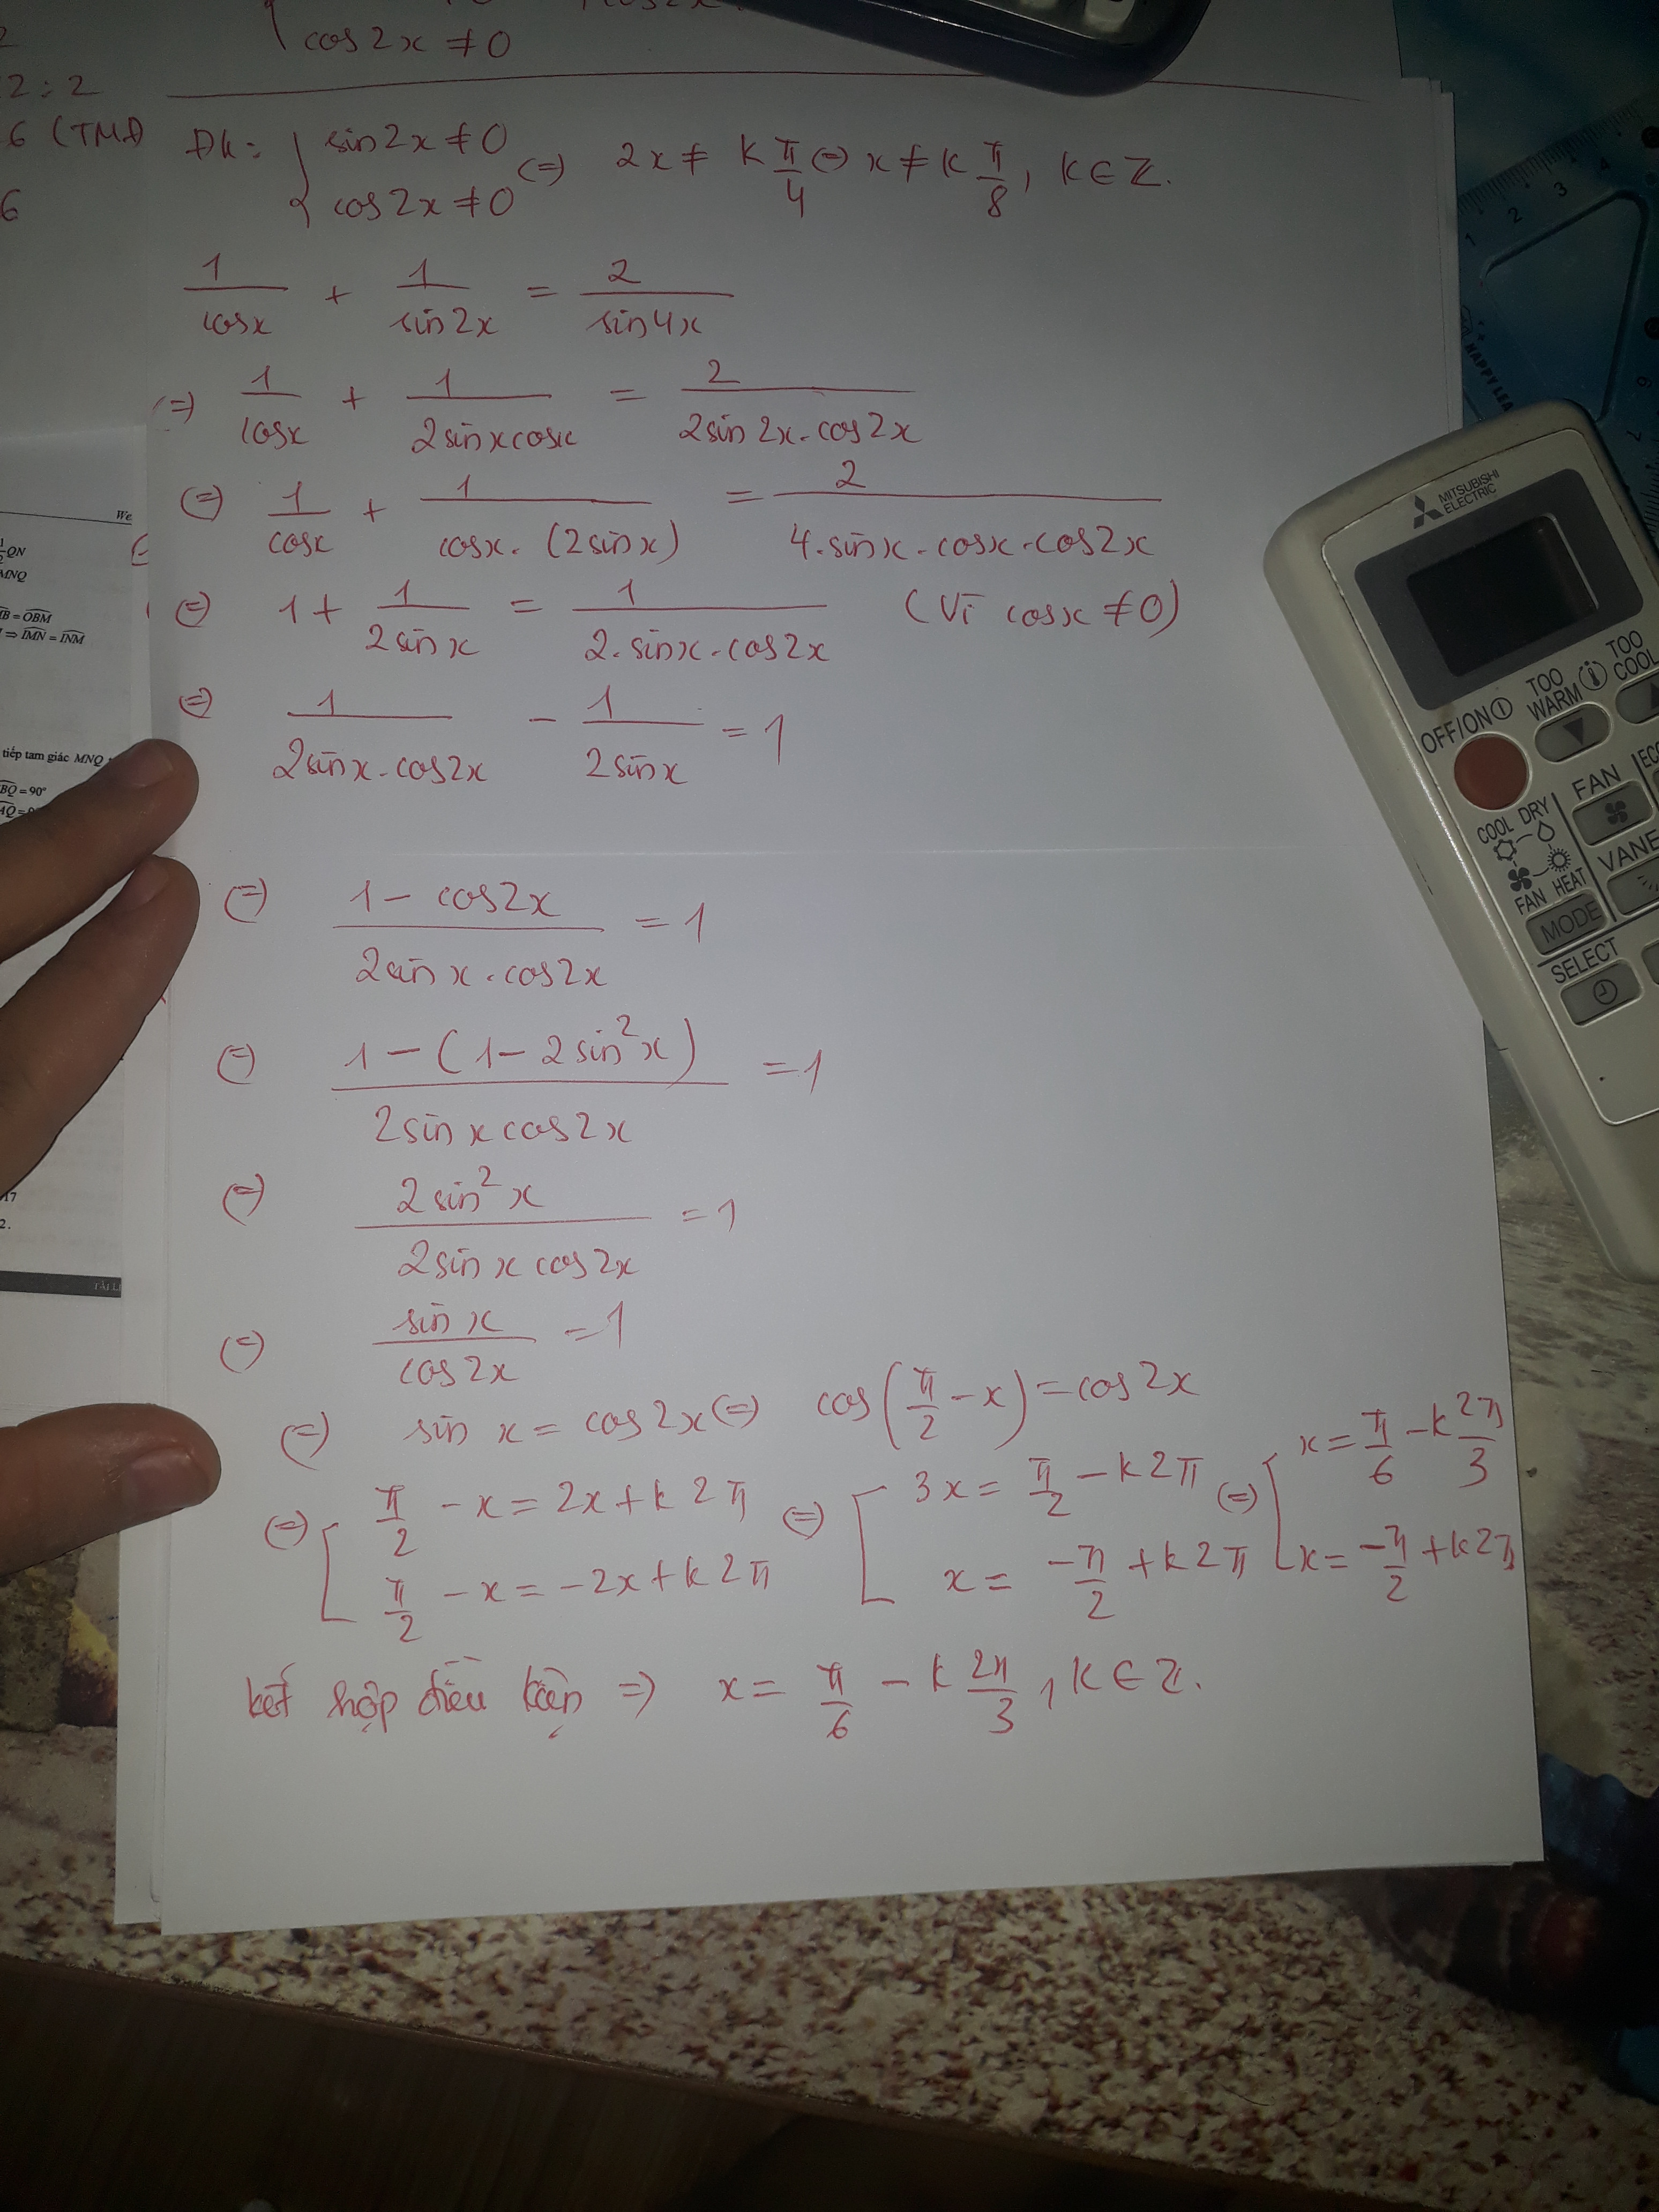 cos2x ≠ 0
2 : 2
6 (TMĐ)
6
ĐK: { sin2x ≠ 0 cos2x ≠ 0 (=) 2x ≠ k π/4 (=) x ≠ k π/8, k ∈ Z.
1/cosx + 1/sin2x = 2/sin4x
(=) 1/cosx + 1/2sinxcosx = 2/2sin2x.cos2x
(=) 1/cosx + 1/cosx.(2sinx) = 2/4.sinx.cosx.cos2x
(=) 1 + 1/2sinx = 1/2.sinx.cos2x (Vì cosx ≠ 0)
(=) 1/2sinx.cos2x - 1/2sinx = 1
(=) 1 - cos2x/2sinx.cos2x = 1
(=) 1 - (1 - 2sin²x)/2sinxcos2x = 1
(=) 2sin²x/2sinxcos2x = 1
(=) sinx/cos2x = 1
(=) sinx = cos2x (=) cos(π/2 - x) = cos2x
(=) [ π/2 - x = 2x + k2π (=) [ 3x = π/2 - k2π (=) [ x = π/6 - k 2π/3
π/2 - x = -2x + k2π x = -π/2 + k2π x = -π/2 + k2π
kết hợp điều kiện => x = π/6 - k 2π/3, k ∈ Z.
QN
MNQ
= OBM
⇒ IMN = INM
tiếp tam giác MNQ
BQ = 90°
17
2.
MITSUBISHI
ELECTRIC
OFF/ON
TOO
WARM
TOO
COOL
FAN
VANE
COOL DRY
FAN HEAT
MODE
SELECT
1 2 3 4